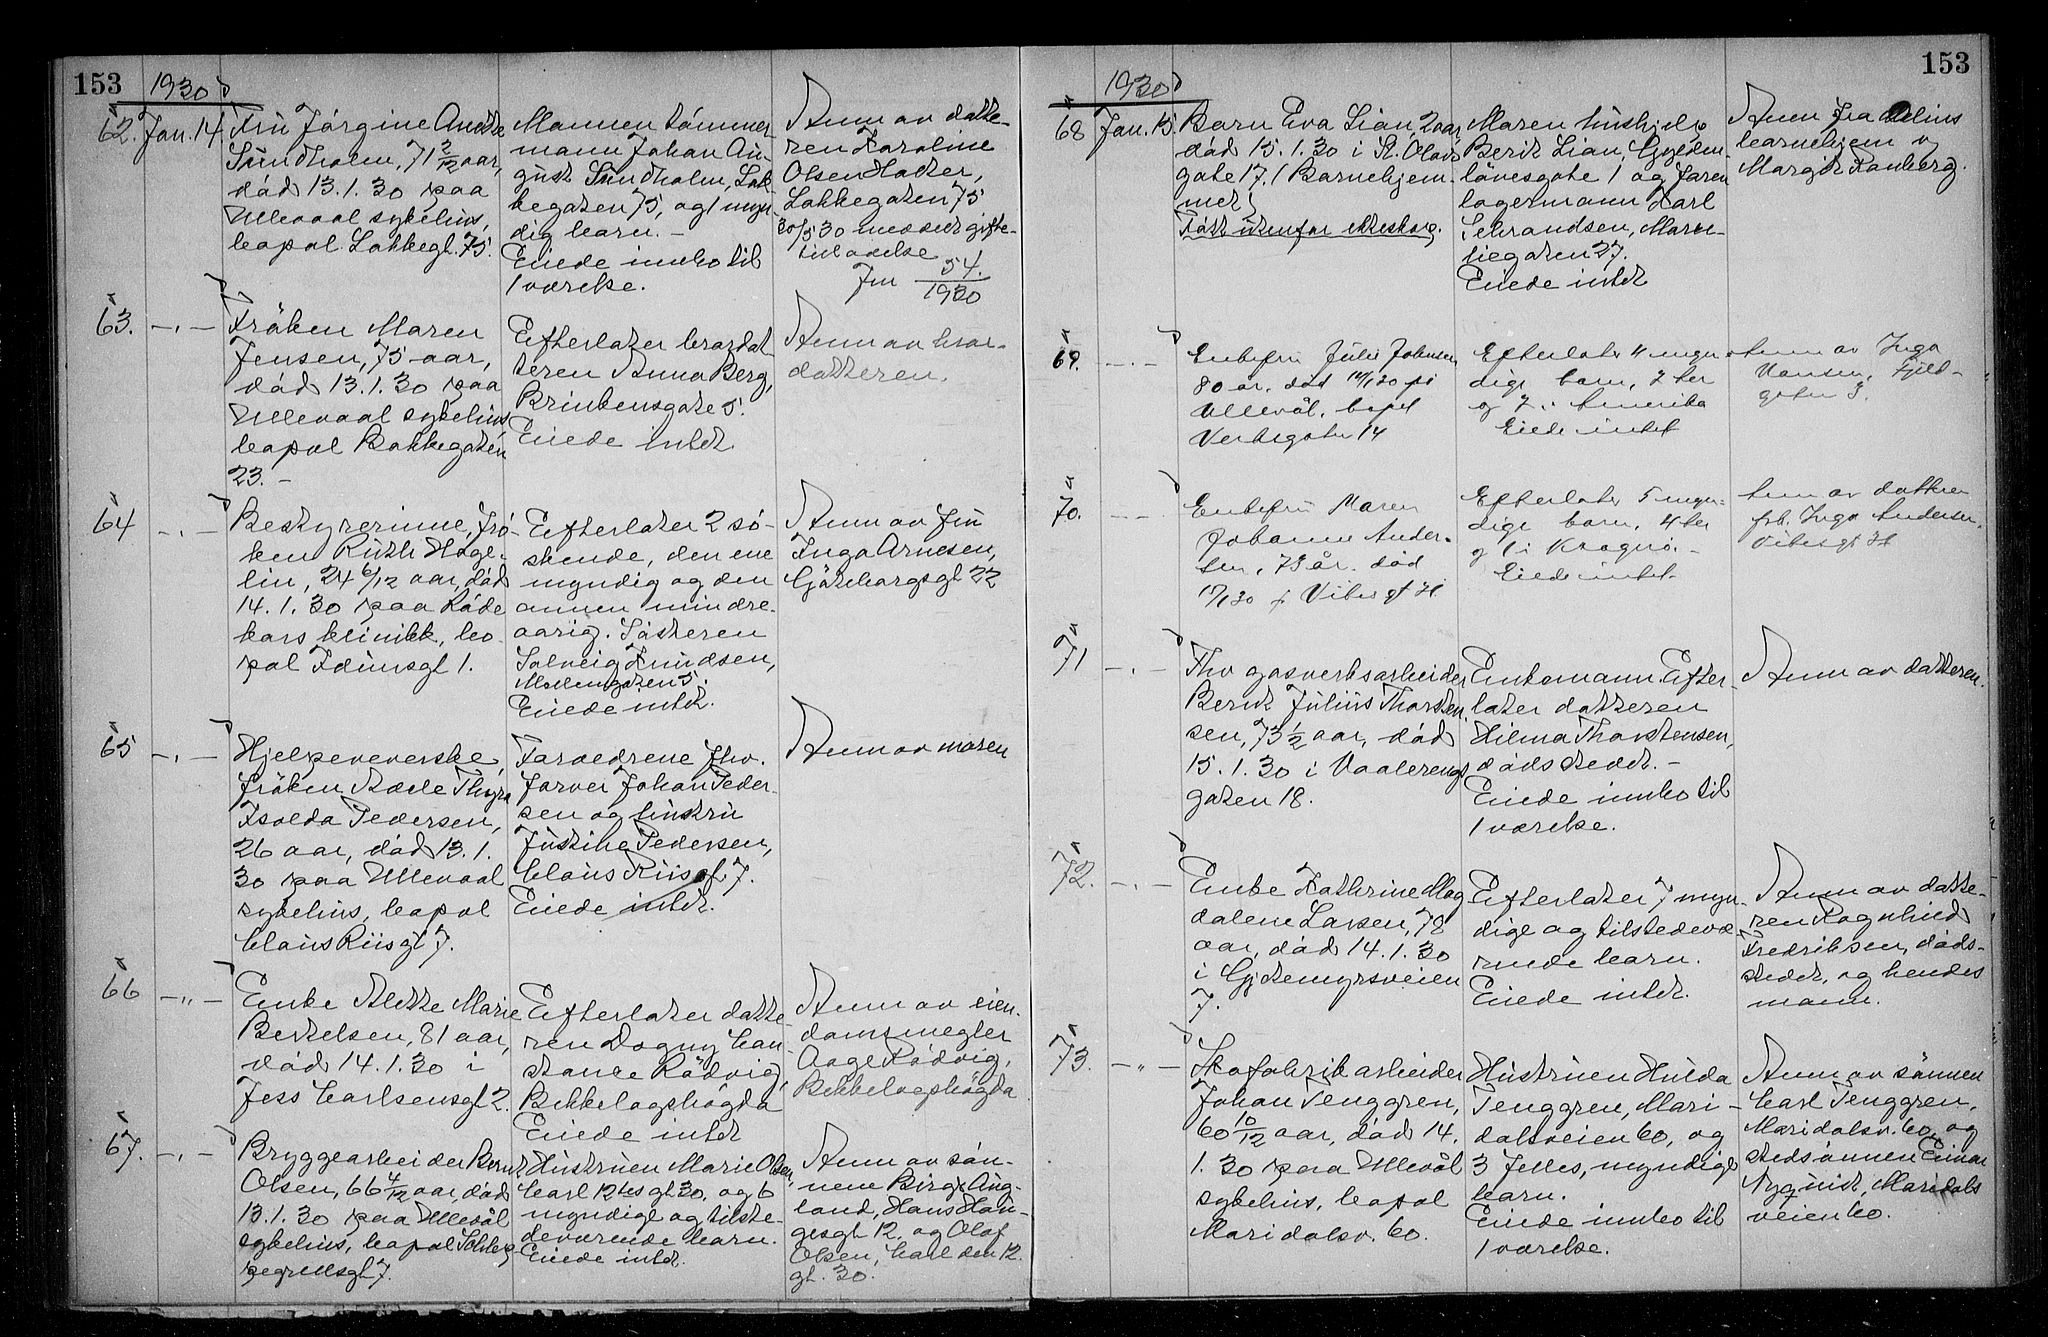 153
1930
62. Jan. 14. Fru Jörgine Anette
Sundholm, 71 2/12 aar,
död 13.1.30 paa
Ullevaal sykehus,
bopæl Lakkegt. 75.
Mannen tömmer-
mann Johan Au-
gust Sundholm, Lak-
kegaten 75, og 1 myn-
dig barn. -
Eiede innbo til
1 værelse.
Anm av datte-
ren Karoline
Olsen
Lakkegaten 75
30/5 30 meddelt gifte-
tilladelse
Jnr 54/1930
63. -"- Fröken Maren
Jensen, 75 aar,
död 13.1.30 paa
Ullevaal sykehus
bopæl Bakkegaten
23. -
Efterlater brordat
teren Anna Berg,
Brinkensgate 5.
Eiede intet
Anm av bror-
datteren.
64 -"- Bestyrerinne, frö-
ken Ruth Høge-
lin, 24 6/12 aar, död
14.1.30 paa Röde
kors klinikk, bo-
pæl Idunsgt 1.
Efterlater 2 sö-
skende, den ene
myndig og den
annen mindre-
aarig. Sösteren
Solveig Knudsen,
Möllergaten 5.
Eiede intet.
Anm av fru
Inga Arnesen,
Göteborgsgt 22
65 -"- Hjelpeveverske,
fröken Adele Thyra
Isolda Pedersen,
26 aar, död 13.1.
30 paa Ullevaal
sykehus, bopæl
Claus Riisgt 7.
Foreldrene fhv.
farver Johan Peder-
sen og hustru
Justine Pedersen,
Claus Riisgt 7.
Eiede intet.
Anm av moren
66 -"- Enke Alette Marie
Bertelsen, 81 aar,
död 14.1.30 i
Jess Carlsensgt 2.
Efterlater datte-
ren Dagny Con-
stance Rödvig,
Bekkelagshögda
Eiede intet
Anm av eien-
domsmegler
Aage Rödvig,
Bekkelagshögda
67. -"- Bryggearbeider Bernt
Olsen, 66 4/12 aar, död
13.1.30 paa Ullevål
sykehus, bopæl
7.
Hustruen Marie Olsen,
Carl 12tes gt 30, og 6
myndige og tilste-
deværende barn.
Eiede intet.
Anm av sön-
nene Birger Aug-
land, Hans Hau-
gesgt 12, og Olaf
Olsen, Carl den 12.
gt. 30.
153
1930
68 Jan. 15. Barn Eva Lian, 2 aar,
död 15.1.30 i St. Olavs
gate 17. (Barnehjem-
met)
Födt utenfor ekteskap.
Moren hushjelp
Berit Lian, Gylden-
lövesgate 1 og faren
lagermann Karl
Sebrandsen, Mari-
liegaten 27.
Eiede intet
Anm fra
barnehjem v
Margit Ramberg.
69. -"- Enkefru Julie Johnsen,
80 år. död 14/1 30 på
Ullevål, bopæl
Verksgaten 14
Efterlater 4 myn-
dige barn, 2 her
og 2 i Amerika
Eiede intet
Anm av Inga
Hansen, Fjeld-
gaten 3.
70. -"- Enkefru Maren
Johanne Ander-
sen, 73 år. död
Efterlater 5 myn-
dige barn, 4 her
og 1 i Kragerö. -
Eiede intet.
Anm av datteren
frk. Inga Andersen,
71 -"- Fhv gasverksarbeider
Bernt Julius Thorsten-
sen, 73 1/2 aar, död
15.1.30 i Vaalerengs
gaten 18.
Enkemann. Efter-
later datteren
Hilma Thorstensen,
dödsstedet. -
Eiede innbo til
1 værelse.
Anm av datteren.
72. -"- Enke Kathrine Mag-
dalene Larsen, 78
aar, död 14.1.30
i Gjetemyrsveien
7.
Efterlater 7 myn-
dige og tilstedevæ-
rende barn.
Eiede intet.
Anm av datte-
ren Ragnhild
Fredriksen, döds-
stedet, og hendes
mann.
73. -"- Skofabrikarbeider
Johan Tenggren,
60 10/12 aar, död 14.
1.30 paa Ullevål
sykehus, bopæl
Maridalsv. 60.
Hustruen Hulda
Tenggren, Mari-
dalsveien 60, og
3 felles, myndige
barn.
Eiede innbo til
1 værelse.
Anm av sönnen
Carl Tenggren,
Maridalsv. 60, og
stedsönnen Einar
Nyquist, Maridals
veien 60.